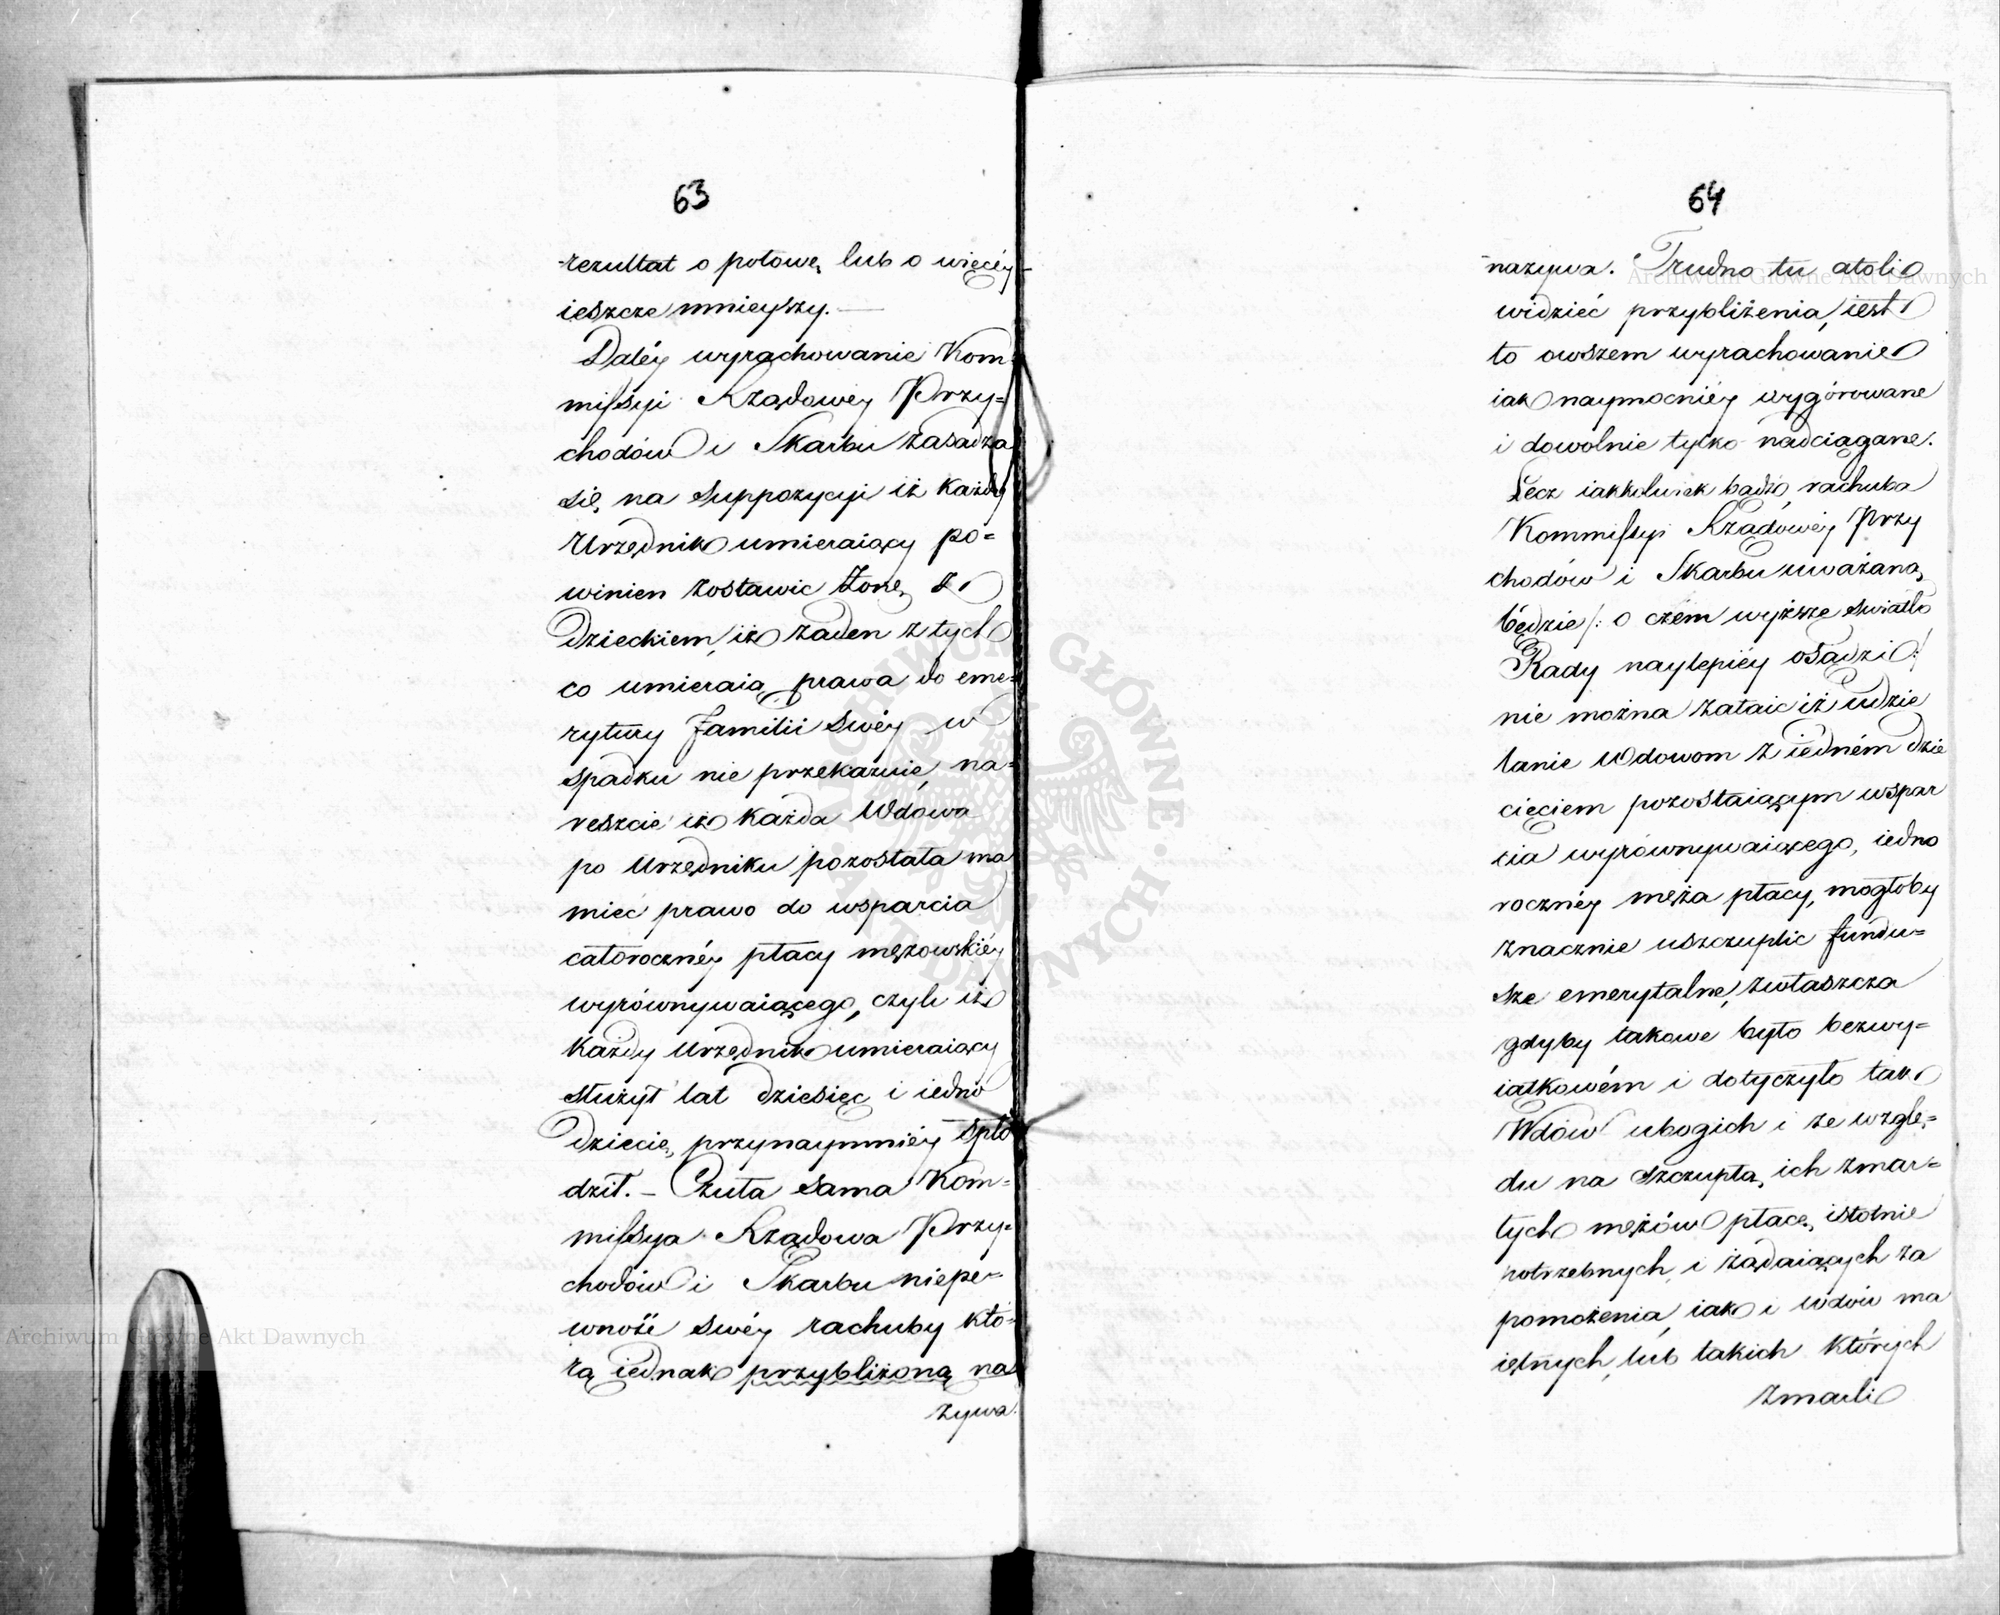 63
rezultat o połowę lub o więcéy
ieszcze mnieyszy. —
Daléy wyrachowanie Kom-
missyi Rządowéy Przy=
chodów i Skarbu zasadza
się na suppozycyi iż każdy
Urzędnik umieraiący po=
winien zostawic żonę z
Dzieckiem, iż żaden z tych
co umieraią prawa do eme=
rytury familii swéy w
spadku nie przekazuie, na=
reszcie iż każda Wdowa
po Urzędniku pozostała ma
mieć prawo do wsparcia
całoroczney płacy mężowskiéy
wyrównywaiącego, czyli iż
Każdy Urzędnik umieraiący
służył lat dziesięc i iedno
Dziecię przynaymniéy spło
dził. – Czuła sama Kom=
missya Rządowa Przy=
chodów i Skarbu niepe=
wność swéy rachuby któ=
rą iednak przybliżoną na
zywa.
64
nazywa. Trudno tu atoli
widzieć przybliżenia, iest
to owszem wyrachowanie
iak naymocniéy wygórowane
i dowolnie tylko nadciągane.
Lecz iakkolwiek bądź, rachuba
Kommissyi Rządowéy Przy
chodów i Skarbu uważaną
będzie /: o czém wyższe światło
Rady naylepiéy osądzi :/
nie można zataic iż udzie
lanie Wdowom z iedném dzie
cięciem pozostaiącym wspar
cia wyrównywaiącego, iedno
rocznéy męża płacy, mogłoby
znacznie uszczuplic fundu=
sze emerytalne, zwłaszcza
gdyby takowe było bezwy=
iątkowém i dotyczyło tak
Wdów ubogich i ze wzglę=
du na szczupłą ich zmar=
tych mężów płacę istotnie
potrzebnych i żądaiących za
pomożenia, iak i wdów ma
iętnych, lub takich których
zmarli
Archiwum Główne Akt Dawnych
Archiwum Główne Akt Dawnych
ARCHIWUM GŁÓWNE · AKT DAWNYCH ·